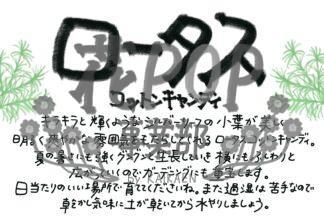 ロータス
コットンキャンディ
キラキラと輝くようなシルバーリーフの小葉が美しく
明るく爽やかな雰囲気をもたらしてくれるロータスコットンキャンディ。
夏の暑さにも強くグングン生長していき横にもふわりと
広がっていくのでガーデニングにも重宝します。
日当たりのいい場所で育ててくださいね。また過湿は苦手なので
乾かし気味に土が乾いてから水やりしましょう。
花POP
事業部